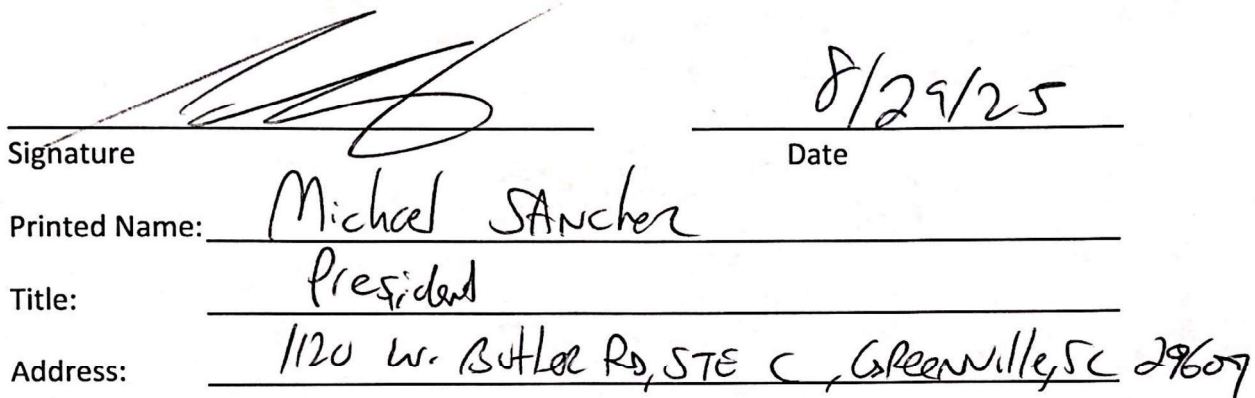 8/29/25
Signature Date
Printed Name: Michael SANchez
Title: President
Address: 1120 W. Butler RD, STE C, GReenville, SC 29607